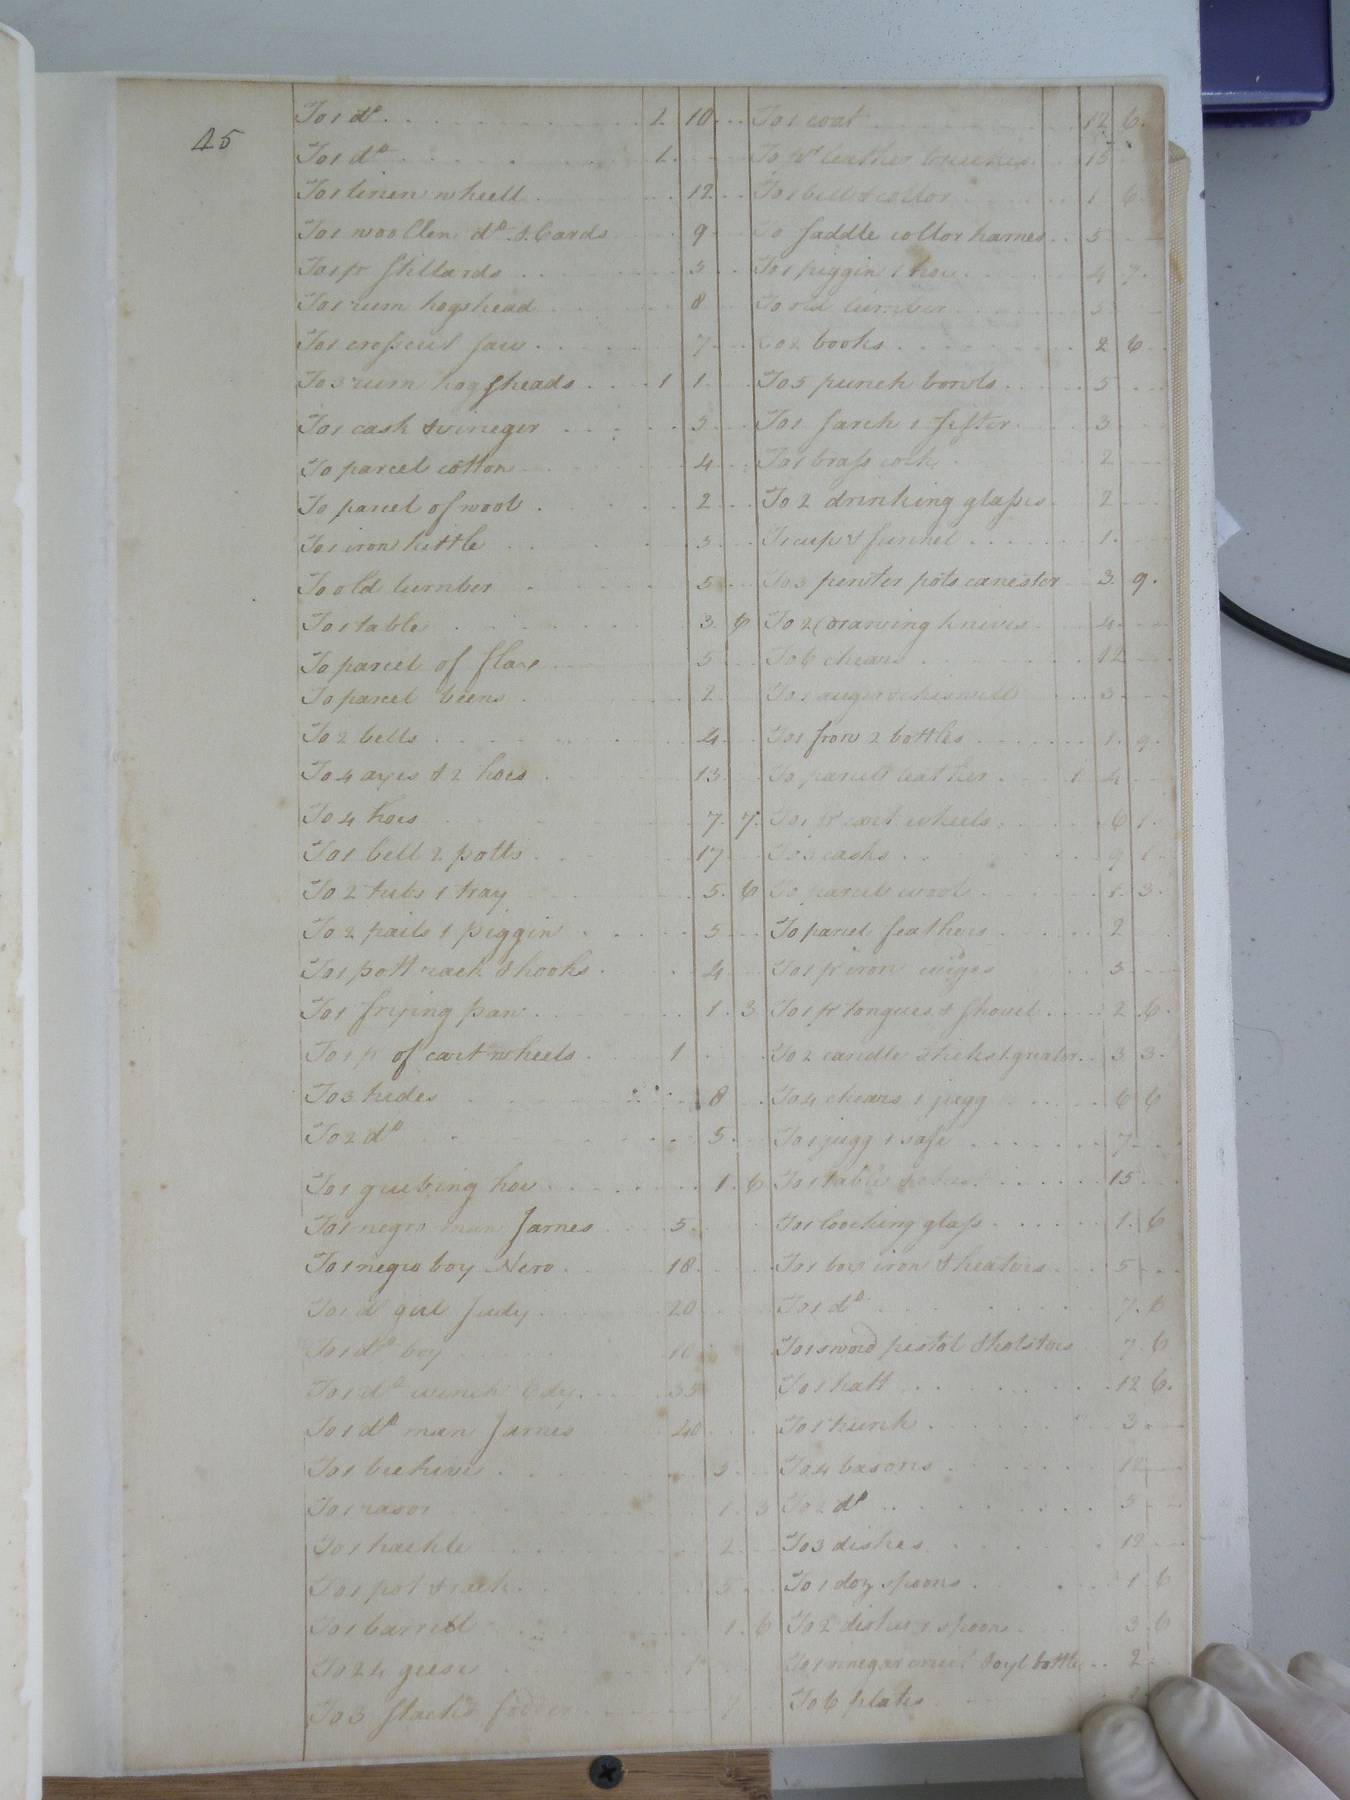 45
To 1 do . . . 1 10
To 1 do . . . 1
To 1 linen wheell . . . 12
To 1 woollen do & Cards 9
To 1 pr stillards . . . 5
To 1 rum hogshead . . . 8
To 1 crosscut saw . . . 7
To 3 rum hogsheads . . . 1 1
To 1 cask & vineger . . . 5
To parcel cotton . . . 4
To parcel of wool . . . 2
To 1 iron kittle . . . 3
To old lumber . . . 5
To 1 table . . . 3 6
To parcel of flax . . . 5
To parcel beens . . . 2
To 2 bells . . . 4
To 4 axes & 2 hoes . . . 13
To 4 hoes . . . 7 7
To 1 bell 2 potts . . . 17
To 2 tubs 1 tray . . . 5 6
To 2 pails 1 piggin . . . 5
To 1 pott rack & hooks . . . 4
To 1 frying pan . . . 1 3
To 1 p of cart wheels . . . 1
To 3 hides . . . 8
To 2 do . . . 5
To 1 grubing hou . . . 1 6
To 1 negro man James . . . 5
To 1 negro boy Nero . . . 18
To 1 do girl Judy . . . 20
To 1 do boy . . .
To 1 do wench Edy . . . 35
To 1 do man James 40
To 1 beehive . . . 5
To 1 rasor 1 3
To 1 hackle . . . 2
To 1 pot & rack . . . 5
To 1 barrell . . . 1 6
To 24 geese . . . 1
To 3 stacks fodder . . .
To 1 coat . . . 12 6
To pr leather breeches . . . 15
To 1 bell & collor . . . 1 6
To saddle collor harnes . . . 5
To 1 piggin 1 hou . . . 4 7
To old lumber . . . 5
To 2 books . . . 2 6
To 5 punch bowls . . . 5
To 1 sarch 1 sifter . . . 3
To 1 brass cock . . . 2
To 2 drinking glasses . . . 2
To 1 cup & funnel . . . 1
To 3 pewter pots canester 3 9
To 2 carving knives . . . 4
To 6 chears . . . 12
To 1 auger & chiswill . . . 3
To 1 frow 2 bottles . . . 1 9
To parcel leather . . . 1 4
To 1 pr cart wheels . . . 6 1
To 3 casks . . . 9 1
To parcel wool . . . 1 3
To parcel feathers . . . 2
To 1 pr iron wedges 3
To 1 pr tongues & shovel . . . 2 6
To 2 candle sticks 1 greater . . 3 3
To 4 chears 1 jugg . . . 6 6
To 1 jugg 1 safe . . . 7
To 1 table . . . 15
To 1 loocking glass . . . 1 6
To 1 box iron & heaters . . . 5
To 1 do . . . 7 6
To 1 sword pistol & holsters 7 6
To 1 hatt . . . 12 6
To 1 trunk . . . 3
To 4 basons . . . 12
To 2 do . . . 5
To 3 dishes . . . 12
To 1 doz spoons . . . 1 6
To 2 dishes 1 spoon . . . 3 6
To 1 vinegar cruet & oyl bottle . . 2
To 6 plates